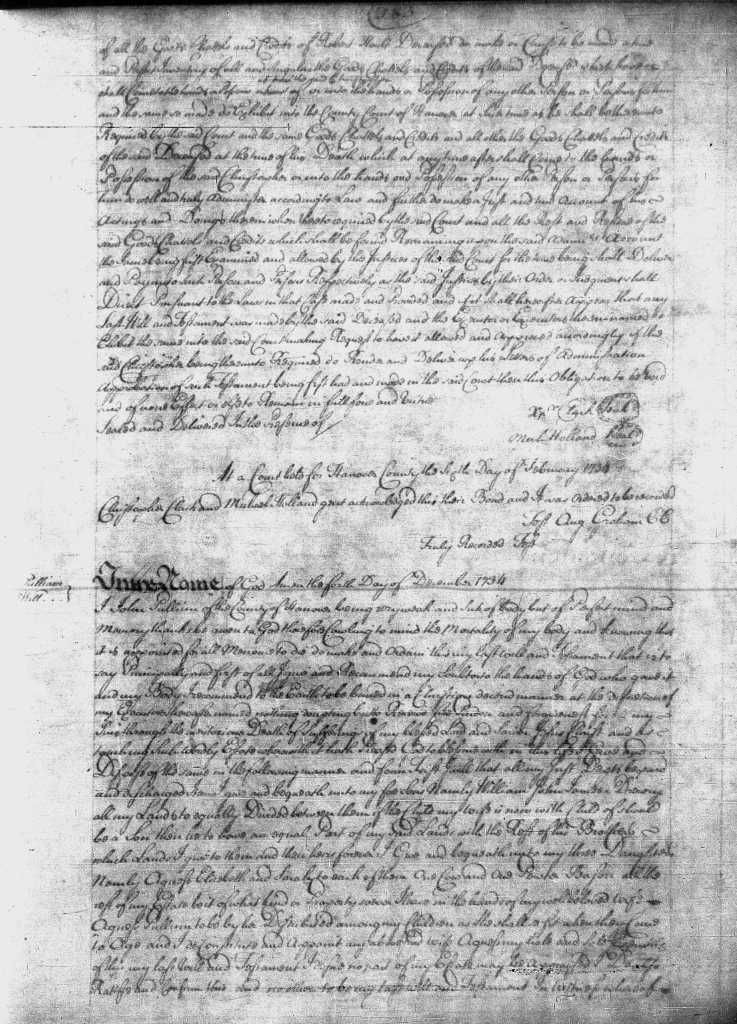 183
of all the Goods Chattels and Credits of Robert Deceased do make or Cause to be made a true
and Perfect Inventory of all and Singular the Goods Chattels and Credits of the said Deceased which have or
shall come to the hands of or into the hands or Possession of any other Person or Persons for him
and the same so made do Exhibit into the County Court of Hanover at Such time as he shall be thereunto
Required by the said Court and the same Goods Chattels and Credits and all other the Goods Chattels and credits
of the said Deceased at the time of his Death which at any time after shall Come to the hands or
Possession of the said Christopher or into the hands and Possession of any other Person or Persons for
him do well and truly Administer according to Law and further do make a Just and true Account of his
Actings and Doings therein when thereto required by the said Court and all the Rest and Residue of the
said Goods Chattels and Credits which shall be found Remaining upon the said Account
the same being first Examined and allowed by the Justices of the said Court for the time being shall Deliver
and Pay unto such Person and Persons Respectively as the said Justices by their Order or Judgment shall
Direct Pursuant to the Laws in that Case made and Provided and if it shall hereafter Appear that any
Last Will and Testament was made by the said Deceased and the Executor or Executors therein named do
Exhibit the same into the said Court making Request to have it allowed and Approved accordingly if the
said Christopher being thereunto Required do Render and Deliver up his Letters of Administration
Approbation of such Testament being first had and made in the said Court then this Obligation to be void
and of none Effect or else to Remain in full force and virtue
Sealed and Delivered In the Presence of
Xpr. Clark Seal'd
Mich. Holland Seal'd
At a Court held for Hanover County the Sixth Day of February 1734
Christopher Clark and Michael Holland gent acknowledged this their Bond and It was Ordered to be recorded
Test Aug Graham CC
Truly Recorded Test
Pulliam
Will
In the Name of God Amen the Day of December 1734
I John Pulliam of the County of Hanover being very weak and Sick of body but of Perfect mind and
Memory thanks be given to God therefore Calling to mind the Mortality of my body and knowing that
it is appointed for all Men once to die do make and Ordain this my last will and Testament that is to
say Principally and first of all I give and Recommend my Soul into the hands of God who gave it
and my Body I recommend to the Earth to be buried in a Christian decent manner at the discretion of
my Executors hereafter named nothing doubting but to Receive full Pardon and forgiveness of my
Sins through the meritorious Death and Suffering of my blessed Lord and Saviour Jesus Christ and as
touching Such Worldly Estate wherewith it hath Pleased God to bless me with in this life I give and
Dispose of the same in the following manner and form first I will that all my Just Debts be paid
and discharged Item I give and bequeath unto my Sons Namely William John
all my Lands to equally Divided between them if the Child my wife is now with Child of should
be a Son then he to have an equal Part of my said Lands with the Rest of his Brothers
which Lands I give to them and their heirs forever I Give and bequeath unto my three Daughters
Namely Agness Elizabeth and Sarah to each of them One Cow and One Pewter Bason all the
rest of my Estate be it of what kind or Property soever I leave in the hands of my well beloved wife
Agness Pulliam to be by her Distributed among my Children as she shall fit when they Come
to Age and I do Constitute and Appoint my above said wife Agness my whole and Sole Executrix
of this my last Will and Testament I desire no part of my Estate may be appraised I Do
Ratifie and Confirm this and no other to be my last will and Testament In witness whereof